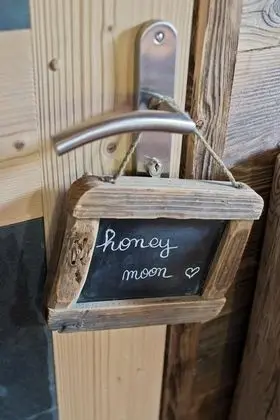 honey
moon ♡